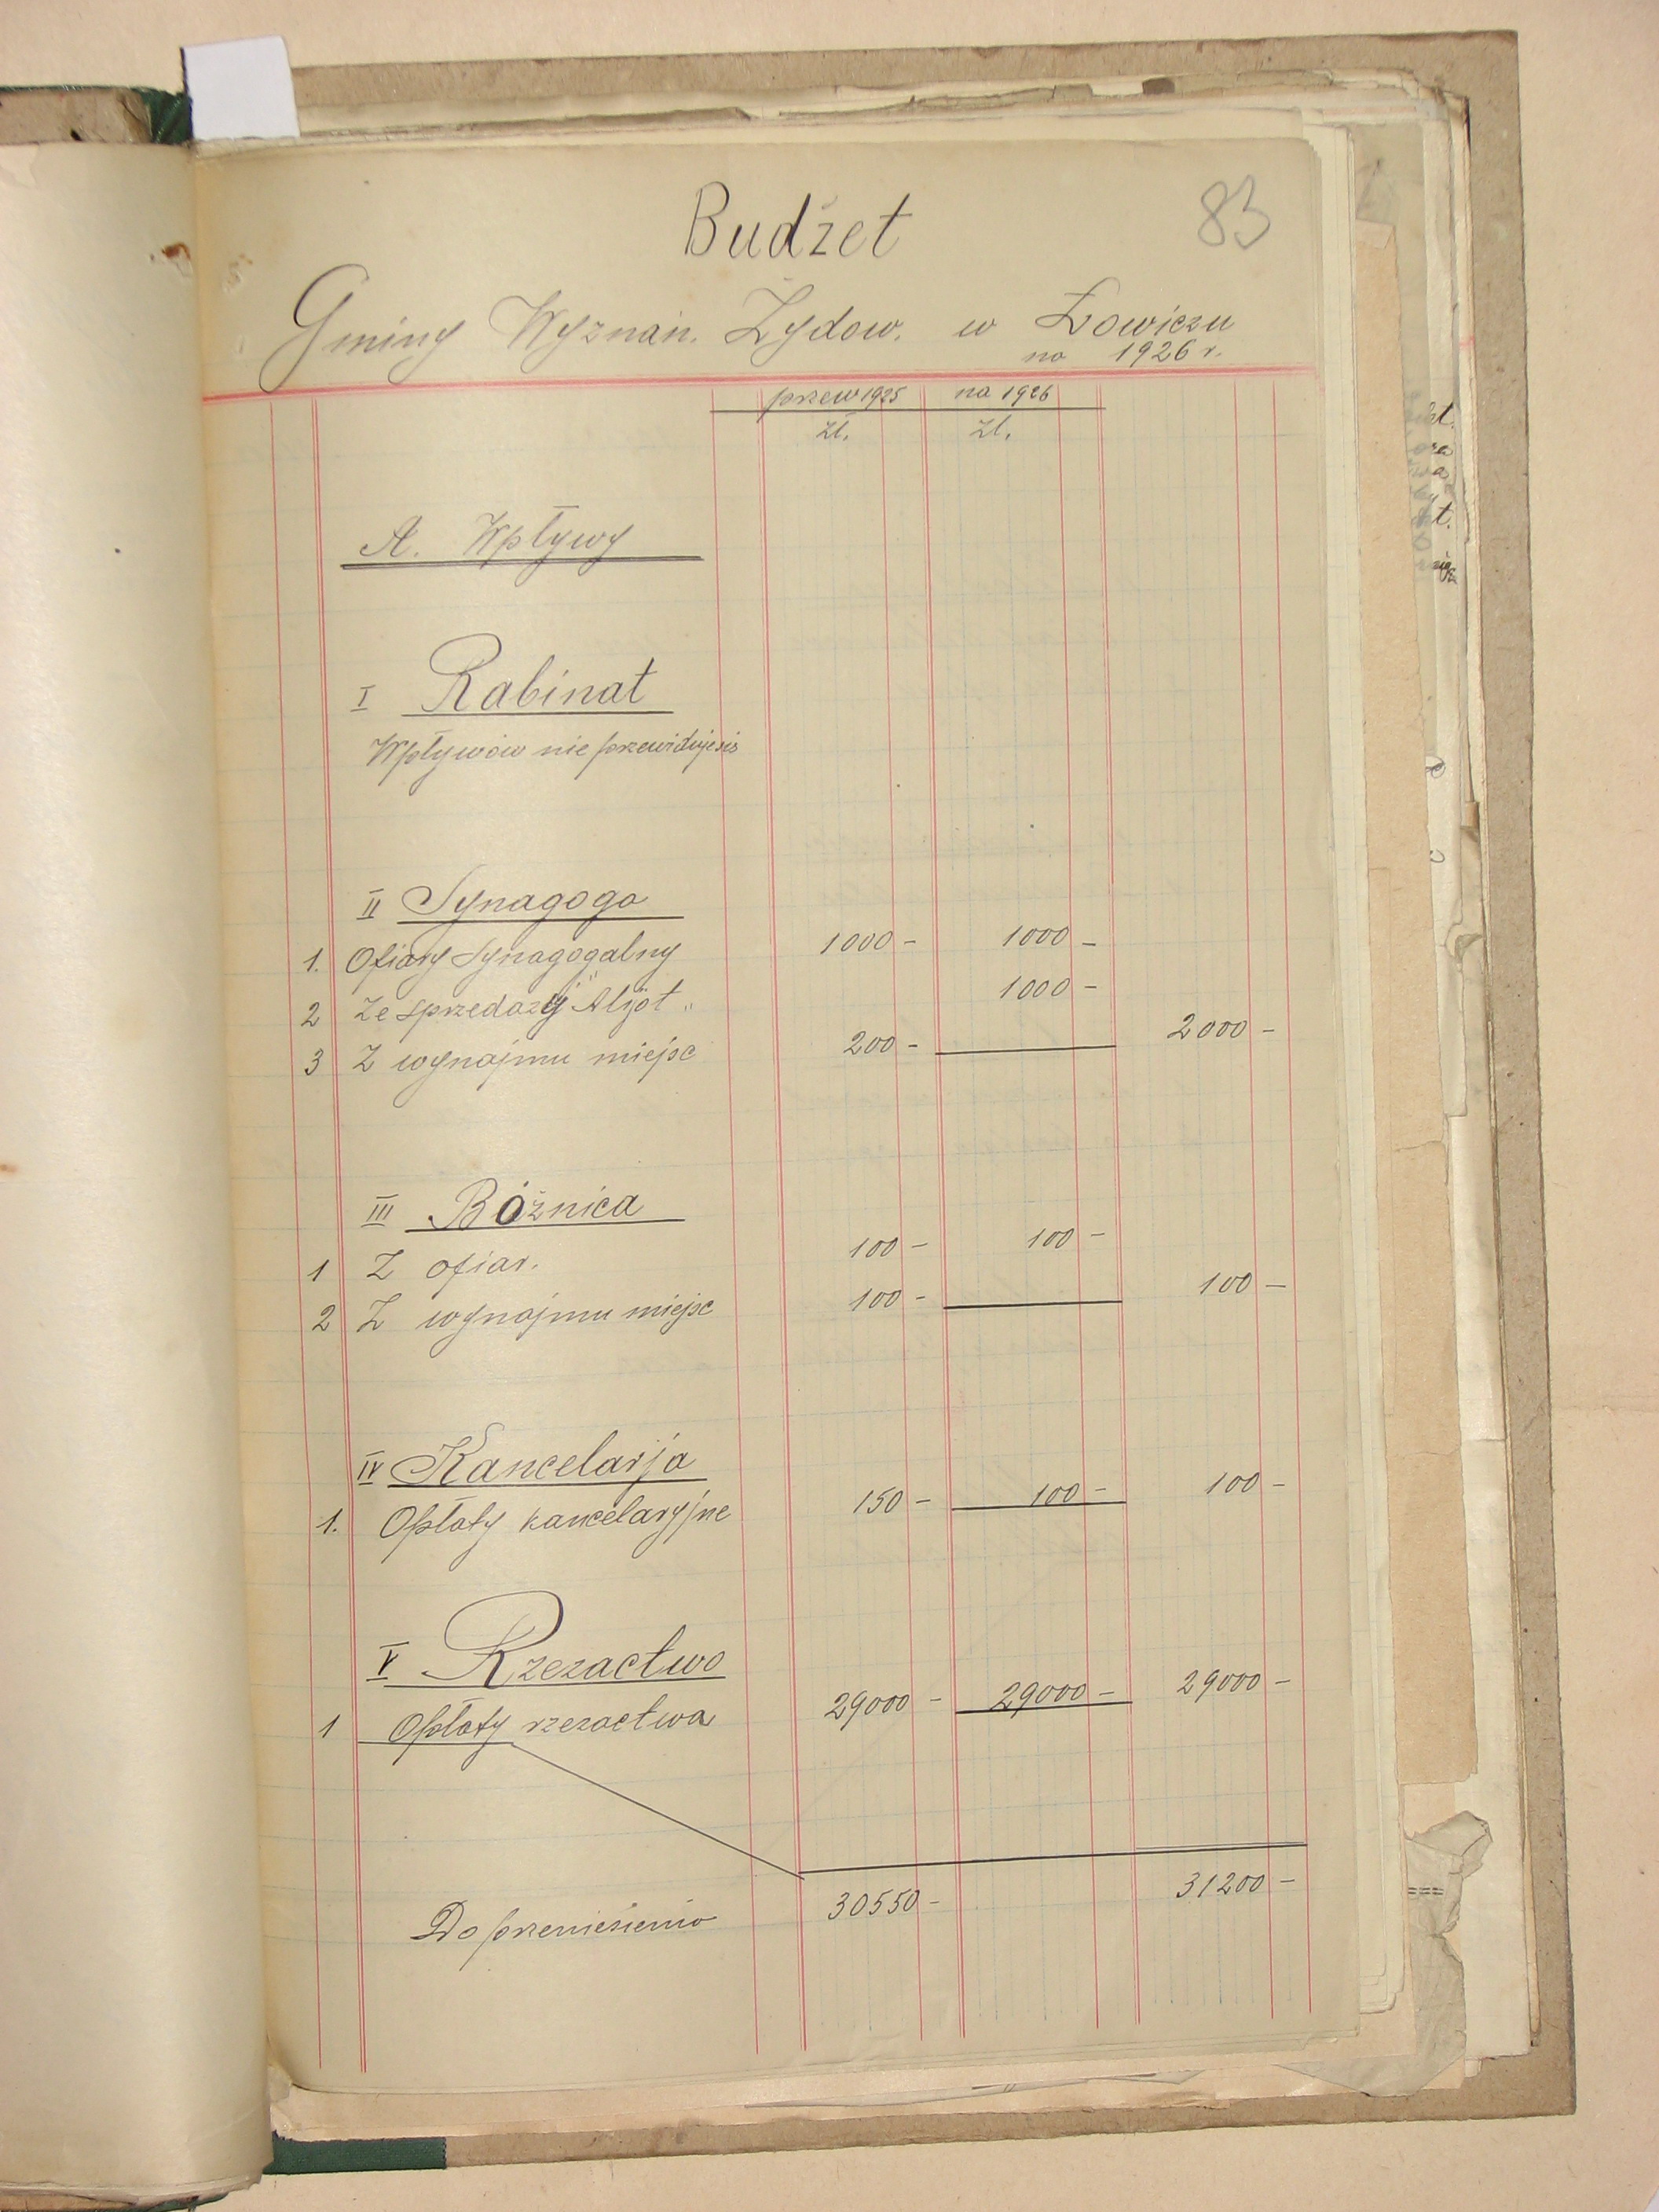 83
Budżet
Gminy Wyznan. Żydow. w Łowiczu
na 1926 r.
przew 1925 na 1926
zł. zł.
A. Wpływy
I Rabinat
Wpływów nie przewiduje się
II Synagoga
1. Ofiary Synagogalny 1000 - 1000 -
2 Ze sprzedaży "Alijot" 1000 -
3 Z wynajmu miejsc 200 - 2000 -
III Bóżnica
1 Z ofiar. 100 - 100 -
2 Z wynajmu miejsc 100 - 100 -
IV Kancelarja
1. Opłaty kancelaryjne 150 - 100 - 100 -
V Rzezactwo
1 Opłaty rzezactwa 29000 - 29000 - 29000 -
Do przeniesienia 30550 - 31200 -